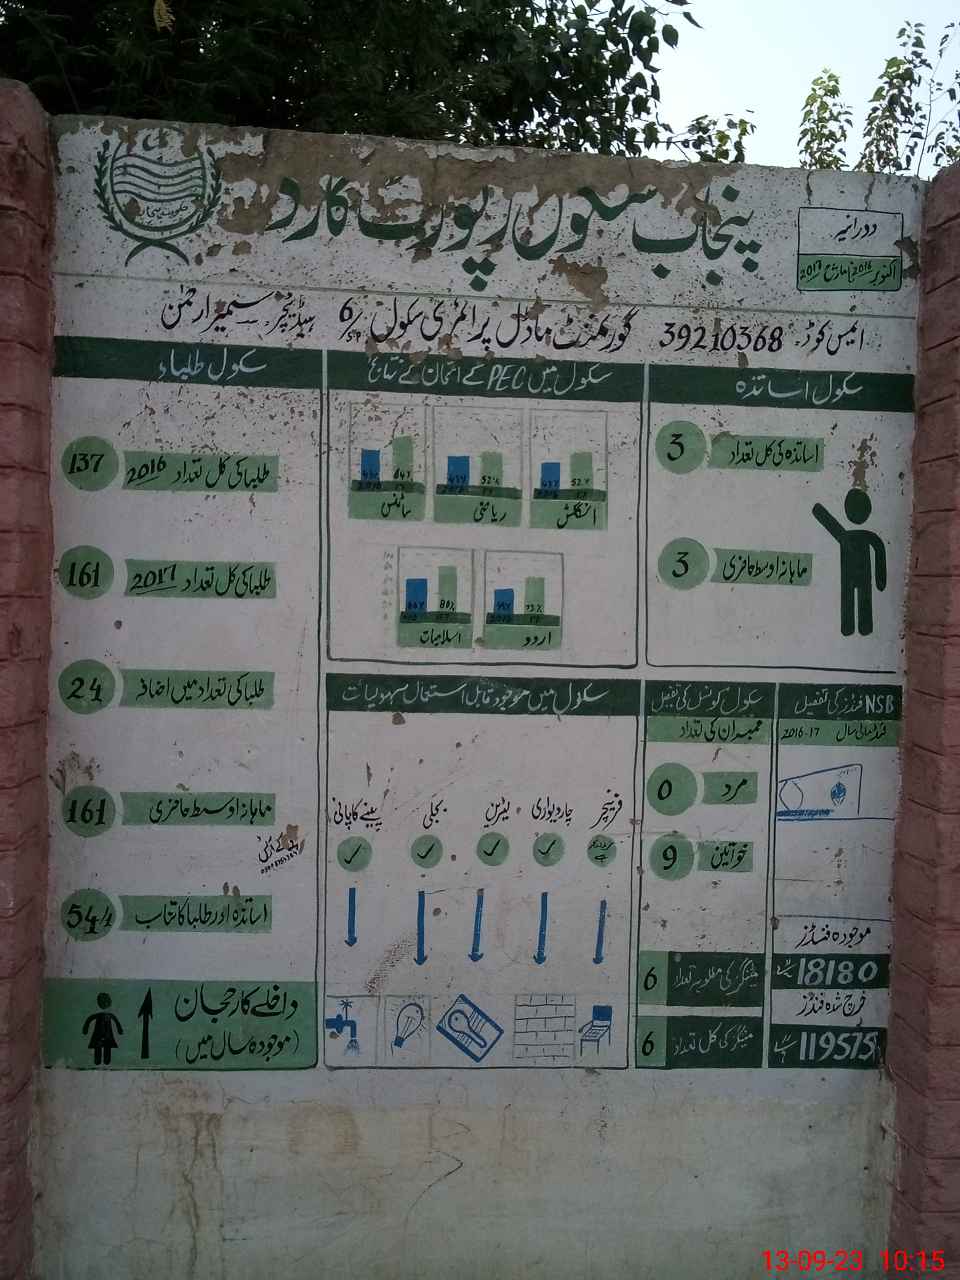 پنجاب سکول رپورٹ کارڈ
حکومت پنجاب
دورانیہ
اکتوبر 2016 تا مارچ 2017
ایمس کوڈ: 39210368 گورنمنٹ ماڈل پرائمری سکول 6/SP ہیڈ ٹیچر
سکول اساتذہ
3 اساتذہ کی کل تعداد
3 ماہانہ اوسط حاضری
سکول میں PEC کے امتحان کے نتائج
انگلش
52%
ریاضی
52%
سائنس
64%
اردو
73%
اسلامیات
80%
سکول طلباء
137 طلبا کی کل تعداد 2016
161 طلبا کی کل تعداد 2017
24 طلبا کی تعداد میں اضافہ
161 ماہانہ اوسط حاضری
54/4 اساتذہ اور طلبا کا تناسب
داخلے کا رحجان
(موجودہ سال میں)
سکول میں موجود قابل استعمال سہولیات
فرنیچر
چار دیواری
لیٹرین
بجلی
پینے کا پانی
سکول کونسل کی تفصیل
ممبران کی تعداد
0 مرد
9 خواتین
6 میٹنگز کی مطلوبہ تعداد
6 میٹنگز کی کل تعداد
NSB فنڈز کی تفصیل
2016-17
موجودہ فنڈز
18180
خرچ شدہ فنڈز
119575
13-09-23 10:15